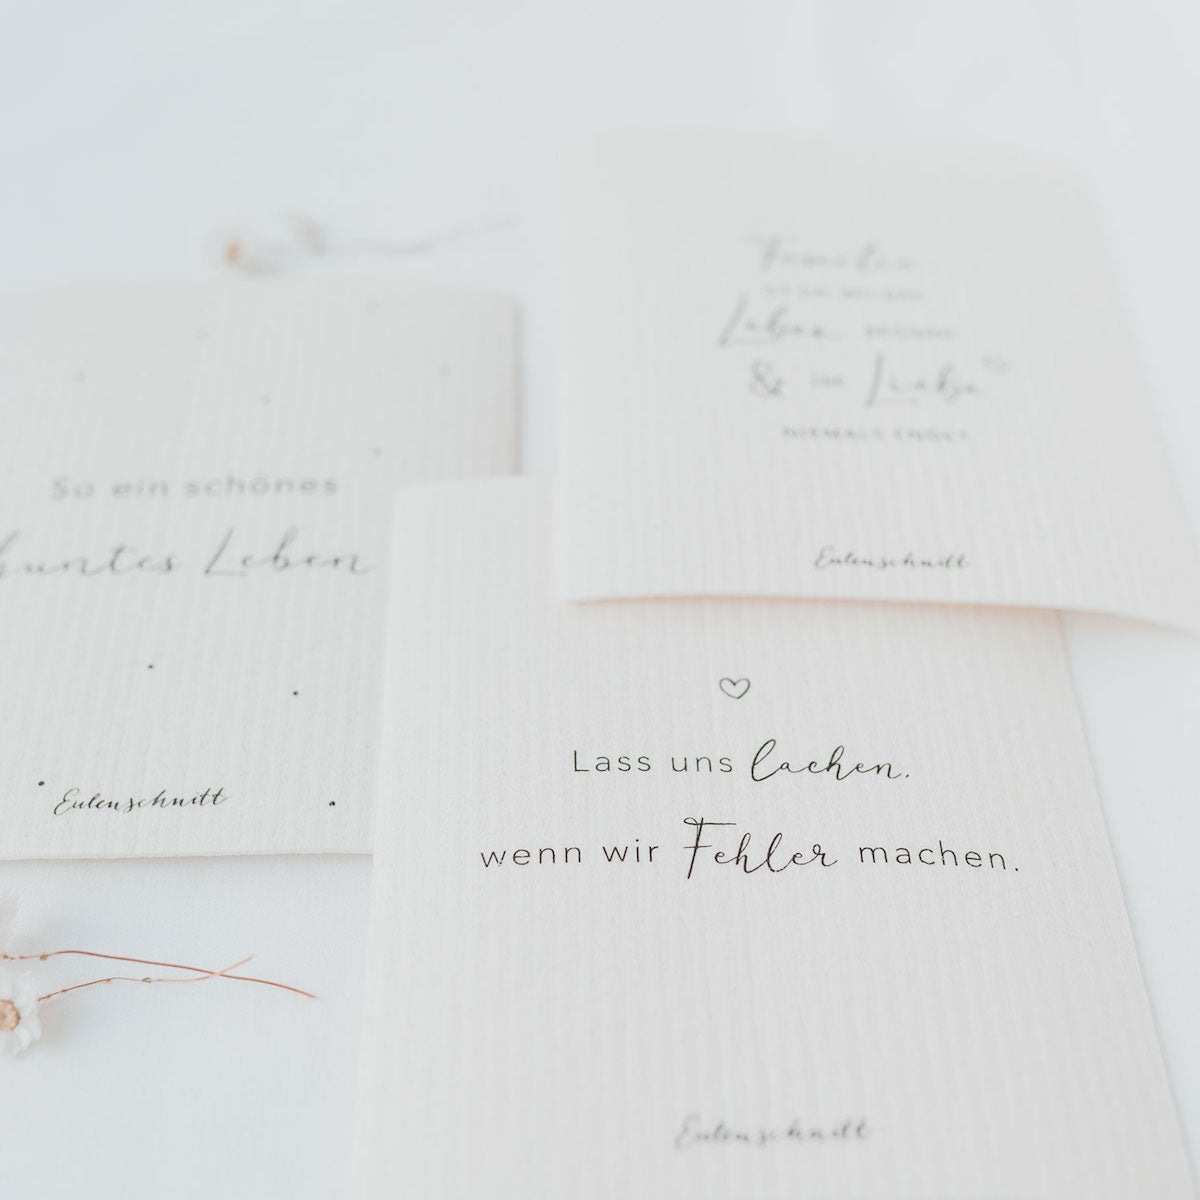 Familie
Leben beginnt
& die Liebe
NIEMALS ENDET
Eulenschnitt
So ein schönes
buntes Leben
Eulenschnitt
Lass uns lachen,
wenn wir Fehler machen.
Eulenschnitt